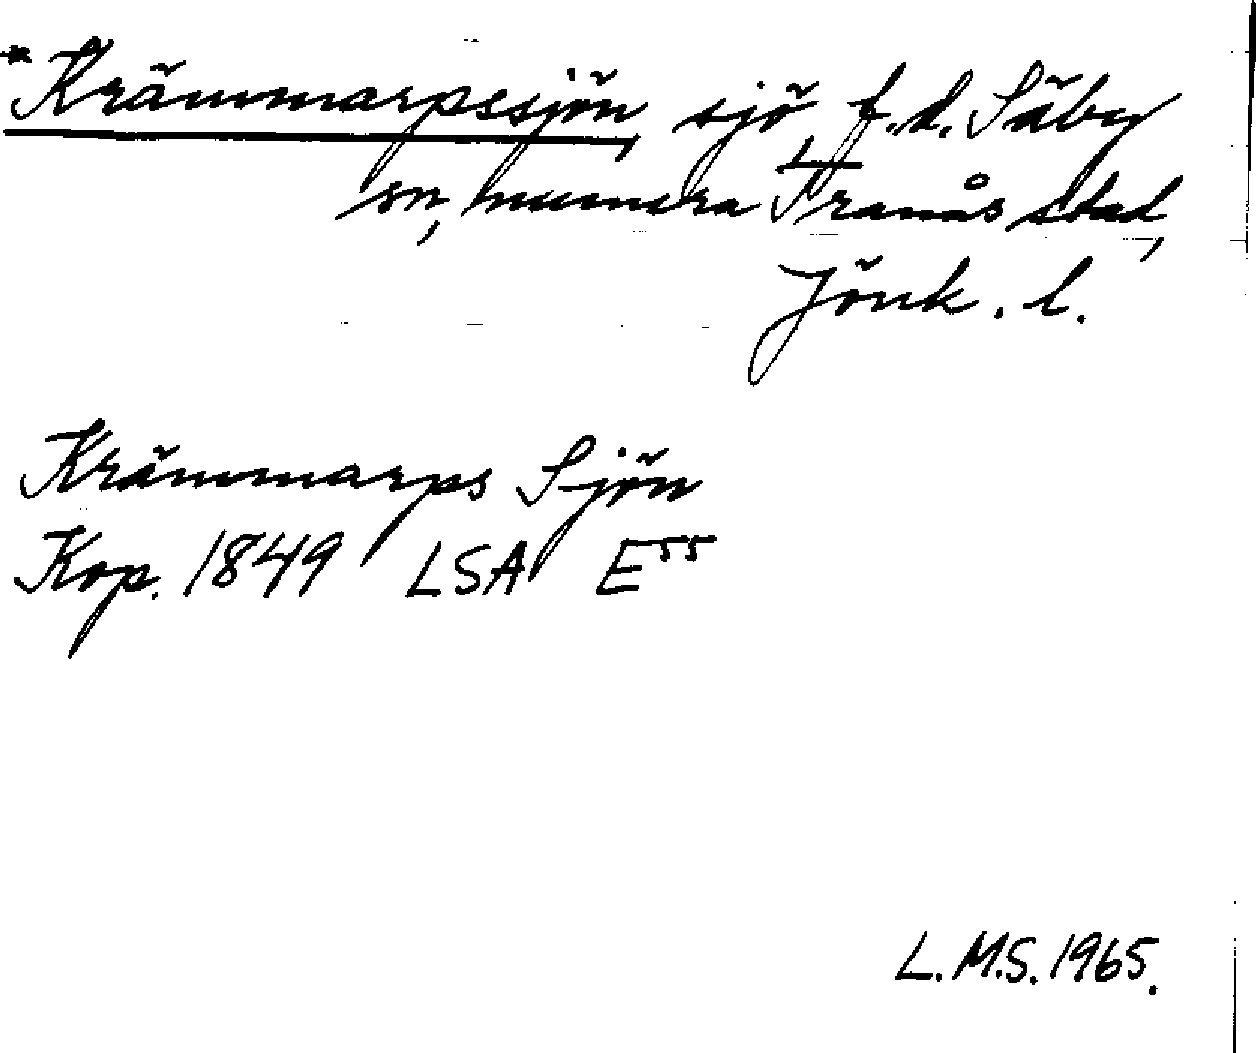 *Krämmarpssjön, sjö, f.d. Säby
sn, numera Tranås stad,
Jönk. l.
Krämmarps Sjön
Kop. 1849 LSA E⁵⁵
L.M.S. 1965.